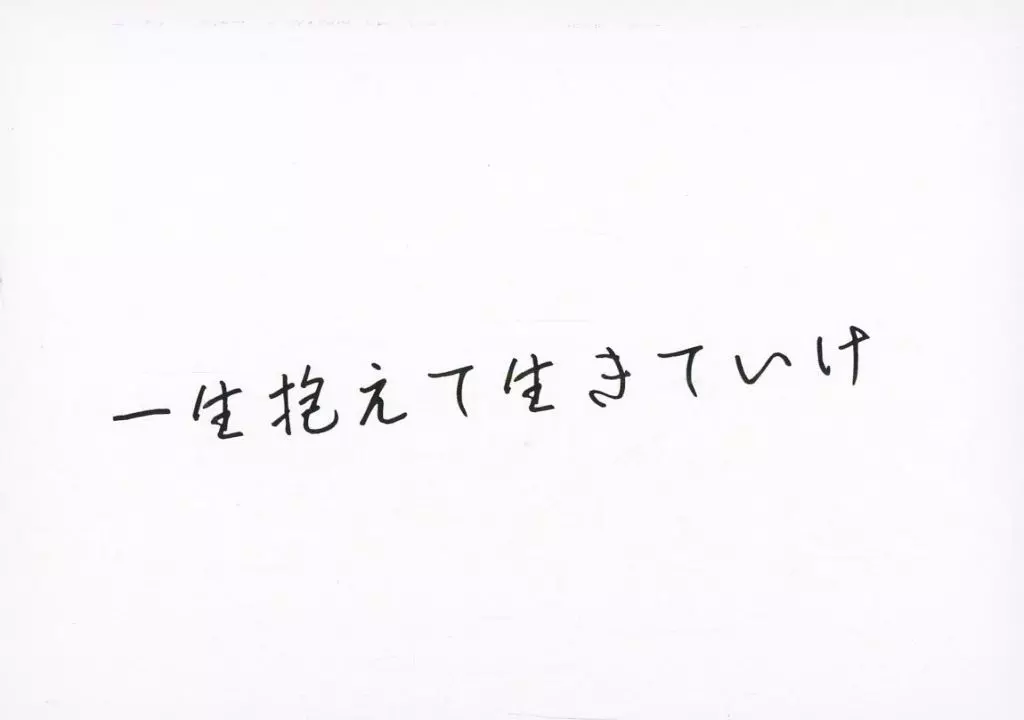 一生抱えて生きていけ